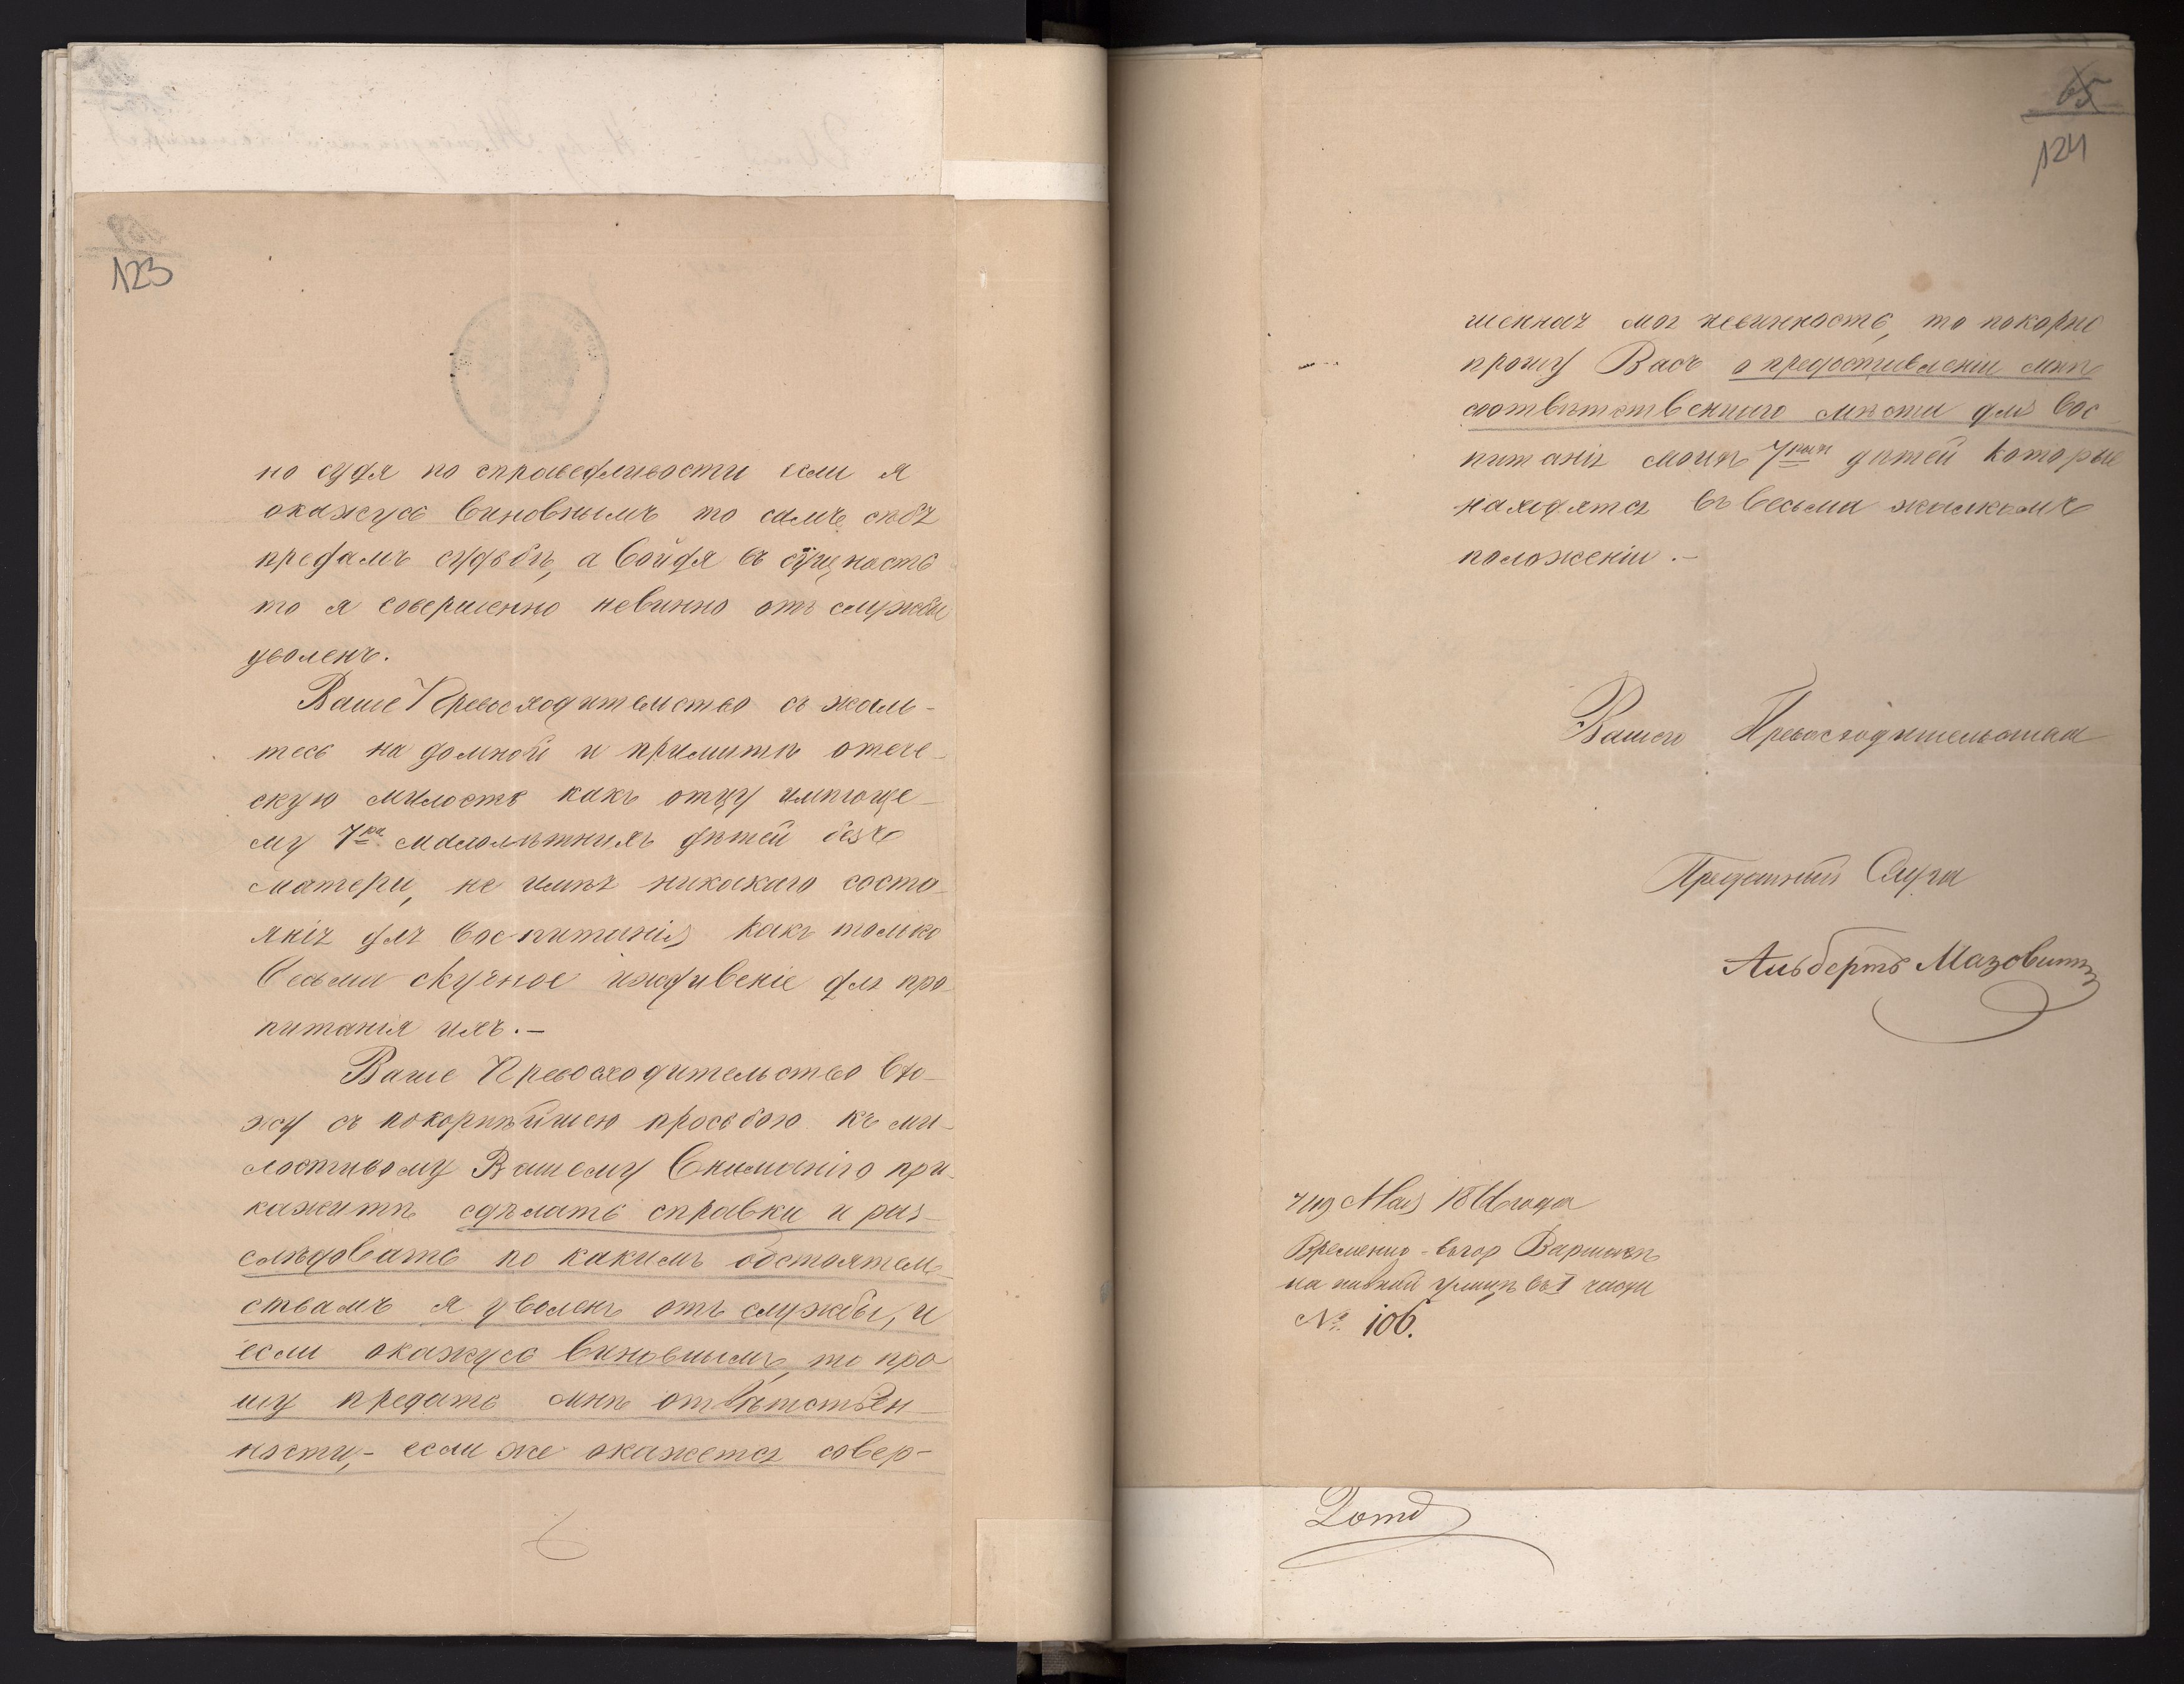 123
но судя по справедливости если я
окажусь виновнымъ то самъ себя
предамъ судьбѣ, а войдя въ сущность
то я совершенно невинно отъ службы
уволенъ.
Ваше Превосходительство сжаль-
тесь надомной и примитѣ отече-
скую милость какъ отцу имѣюще-
му 7ми малолѣтнихъ дѣтей безъ
матери, не имѣя никакаго состо-
янія для воспитанія какъ только
весьма скудное иждивеніе для про-
питанія ихъ.-
Ваше Превосходительство вхо-
жу съ покорнѣйшею просьбою къ ми-
лостивому Вашему Вниманію при-
кажитѣ сдѣлать справки и раз-
слѣдовать по какимъ обстоятель-
ствамъ я уволенъ отъ службы, и
если окажусь виновнымъ, то про
шу предать мнѣ отвѣтствен-
ности,- если же окажется совер-
65
124
шенная моя невинность, то покорно
прошу Васъ о предоставленіи мнѣ
соотвѣтственнаго мѣста для вос-
питанія моихъ 7мыхъ дѣтей которые
находятся въ весьма жалкомъ
положеніи.-
Вашего Превосходительства
Преданный Слуга
Альбертъ Мазовитъ
Мая года
Временно въ гор Варшавѣ
на пивной улицѣ въ I части
№ 106.